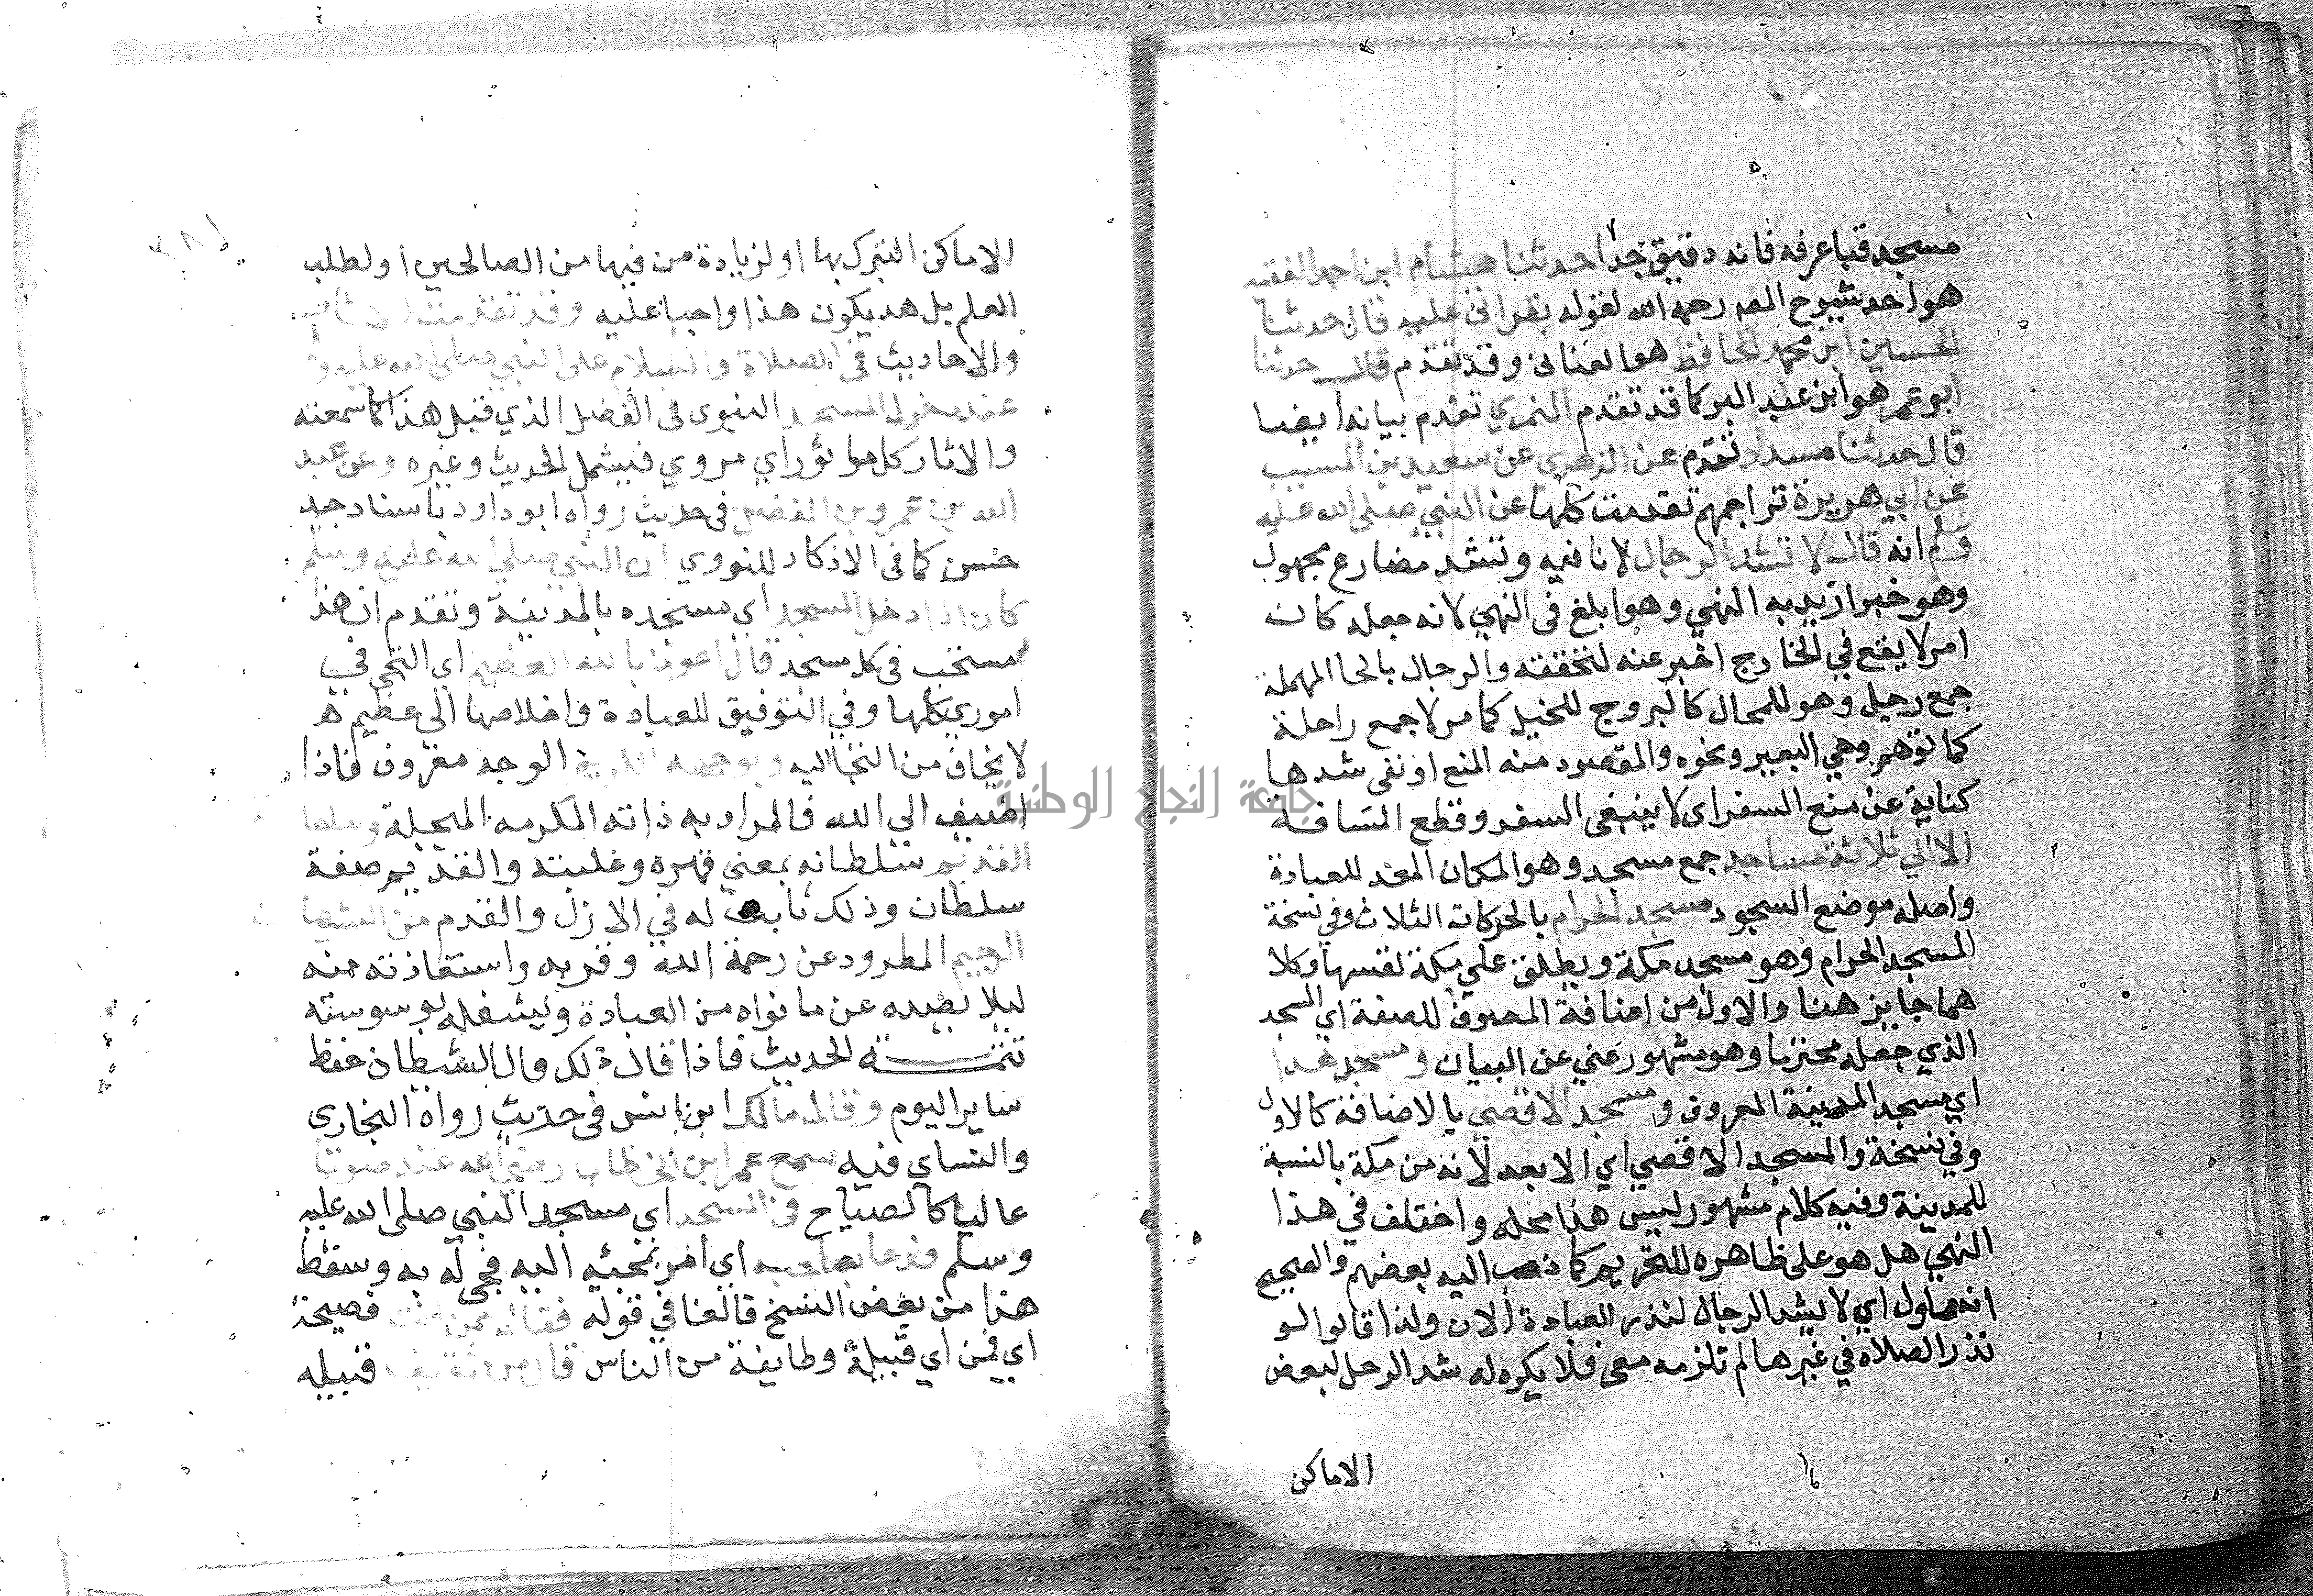 مسجد قبا عرفه فانه دقيق جدا حدثنا هشام ابن احمد الفقيه
هو احد شيوخ المص رحمه الله لقوله بقراتى عليه قال حدثنا
الحسين ابن محمد الحافظ هو الغسانى وقد تقدم قال حدثنا
ابو عمر هو ابن عبد البر كما قد تقدم النمري تقدم بيانه ايضا
قال حدثنا مسدد تقدم عن الزهرى عن سعيد بن المسيب
عن ابي هريرة تراجمهم تقدمت كلها عن النبي صلى الله عليه
وسلم انه قال لا تشد الرحال لا نافيه وتشد مضارع مجهول
وهو خبر اريد به النهي وهو ابلغ فى النهي لانه جعله كان
امر لا يقع في الخارج اخبر عنه لتحققه والرحال بالحا المهملة
جمع رحل وهو للجمال كالسروج للخيل كما مر لا جمع راحلة
كما توهم وهي البعير ونحوه والمقصود منه المنع او نفى شدها
كناية عن منع السفر اى لا ينبغى السفر وقطع المسافة
الا الي ثلاثة مساجد جمع مسجد وهو المكان المعد للعبادة
واصله موضع السجود مسجد الحرام بالحركات الثلاث وفي نسخة
المسجد الحرام وهو مسجد مكة ويطلق علي مكة نفسها وكلا
هما جايز هنا والاول من اضافة الموصوف للصفة اي المسجد
الذي جعله محترما وهو مشهور غني عن البيان ومسجد هذا
اي مسجد المدينة المعروف ومسجد الاقصي بالاضافة كالاول
وفي نسخة والمسجد الاقصي اي الابعد لانه من مكة بالنسبة
للمدينة وفيه كلام مشهور ليس هذا محله واختلف في هذا
النهي هل هو على ظاهره للتحريم كما ذهب اليه بعضهم والصحيح
انه ماول اي لا يشد الرحال لنذر العبادة الان ولذا قالوا لو
نذر الصلاه في غيرها لم تلزمه معى فلا يكره له شد الرحل لبعض
الاماكن
الاماكن التبرك بها او لزيادة من فيها من الصالحين او لطلب
العلم بل هد يكون هذا واجبا عليه وقد تقدمت الاثار
والاحاديث فى الصلاة والسلام على النبي صلى الله عليه
عند دخول المسجد النبوى فى الفصل الذي قبل هذا كما سمعته
والاثار كل ما تؤثر اي مروي فيشمل الحديث وغيره وعن عبد
الله بن عمرو بن الفضل فى حديث رواه ابو داود باسناد جيد
حسن كما فى الاذكار للنووي ان النبي صلي الله عليه وسلم
كان اذا دخل المسجد اي مسجده بالمدينة وتقدم ان هذا
مستحب فى كل مسجد قال اعوذ بالله العظيم اي التجي في
اموري كلها وفي التوفيق للعبادة واخلاصها الى عظيم
لا يخاف من التجا اليه وبوجهه الكريم الوجه معروف فاذا
اضيف الي الله فالمراد به ذاته المكرمه المبجلة وسلطانه
القديم سلطانه بمعني قهره وغلبته والقديم صفة
سلطان وذلك ثابت له في الازل والقدم من الشيطان
الرجيم المطرود عن رحمة الله وقربه واستعاذته منه
ليلا يصده عن ما نواه من العبادة وليشغله بوسوسته
تتمة الحديث فاذا قال ذلك قال الشيطان حفظ
ساير اليوم وقال مالك ابن انس فى حديث رواه البخارى
والنساي فيه سمع عمر ابن الخطاب رضي الله عنه صوتا
عاليا كالصياح فى المسجد اي مسجد النبي صلى الله عليه
وسلم فدعا بصاحبه اي امر بمجئيه اليه فجى له به وسقط
هذا من بعض النسخ فالفا في قوله فقال ممن انت فصيحة
اي فمن اي قبيلة وطايفة من الناس قال من ثقيف قبيله
جامعة النجاح الوطنية